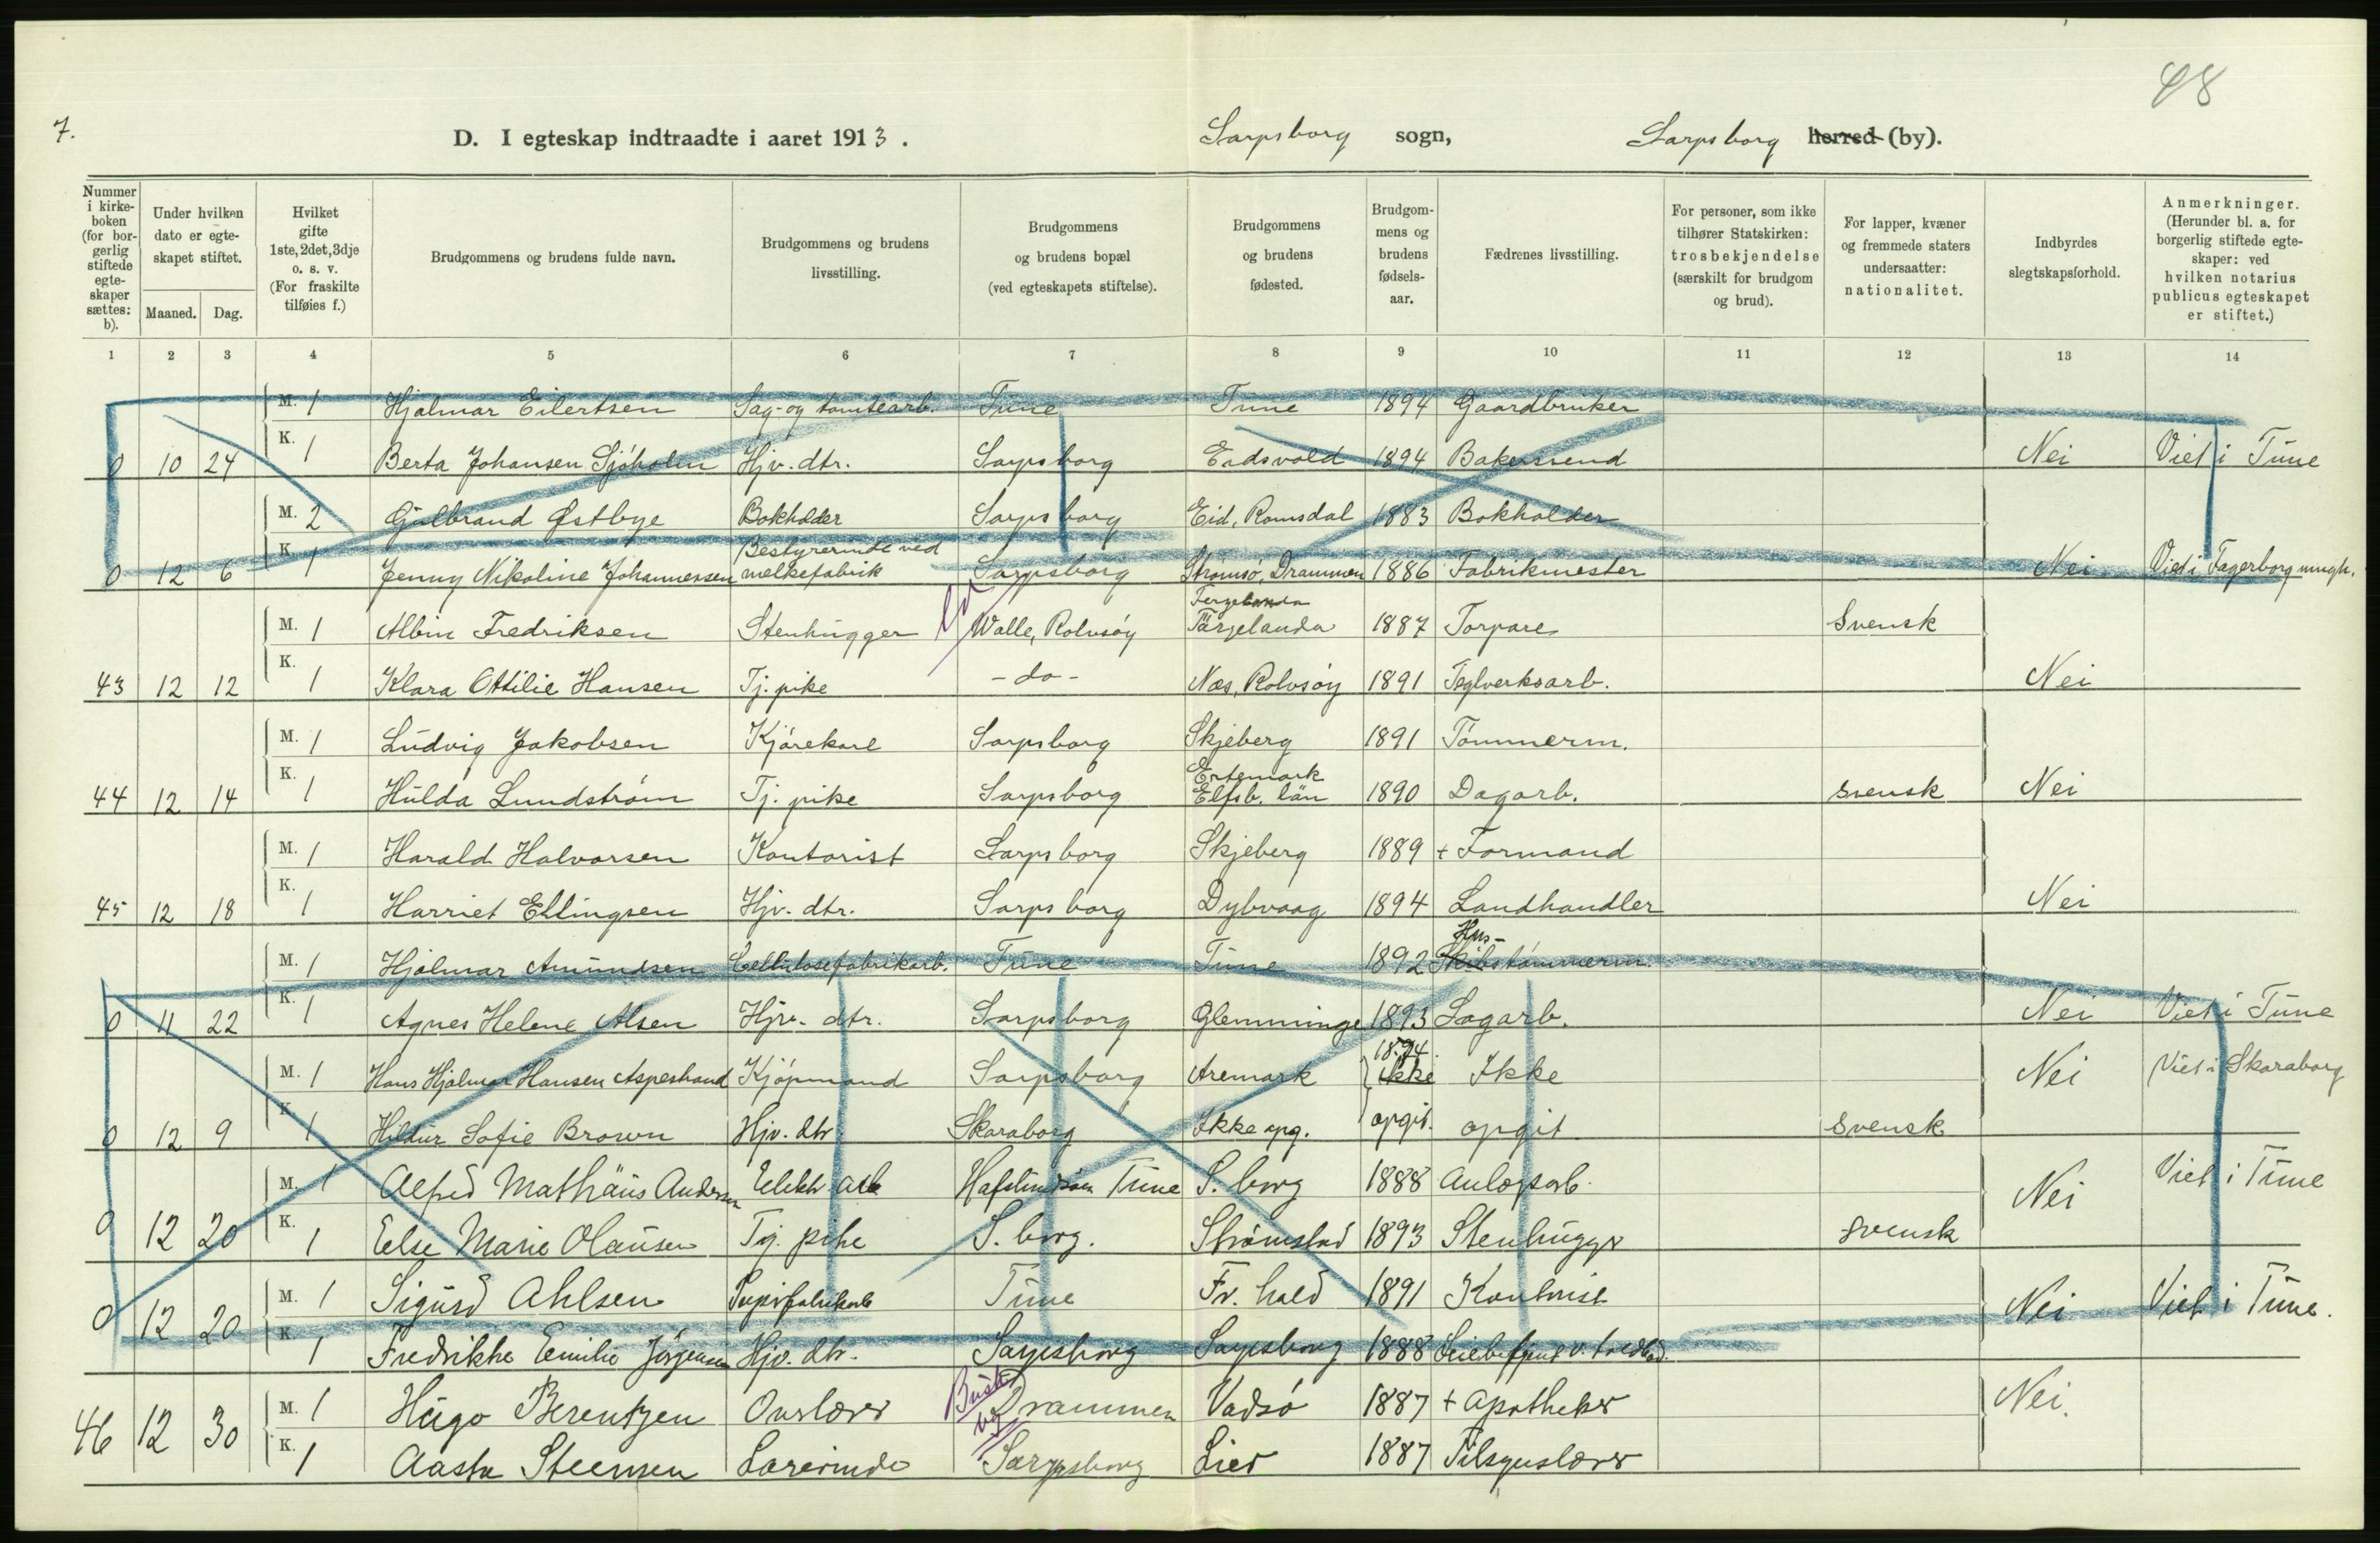 7.
48
D. I egteskap indtraadte i aaret 1913. Sarpsborg sogn, Sarpsborg herred (by).
Nummer i kirkeboken (for borgerlig stiftede egteskaper sættes: b).
Under hvilken dato er egteskapet stiftet.
Maaned. Dag.
Hvilket gifte 1ste, 2det, 3dje o. s. v. (For fraskilte tilføies f.)
Brudgommens og brudens fulde navn.
Brudgommens og brudens livsstilling.
Brudgommens og brudens bopæl (ved egteskapets stiftelse).
Brudgommens og brudens fødested.
Brudgommens og brudens fødselsaar.
Fædrenes livsstilling.
For personer, som ikke tilhører Statskirken: trosbekjendelse (særskilt for brudgom og brud).
For lapper, kvæner og fremmede staters undersaatter: nationalitet.
Indbyrdes slegtskapsforhold.
Anmerkninger. (Herunder bl. a. for borgerlig stiftede egteskaper: ved hvilken notarius publicus egteskapet er stiftet.)
1 2 3 4 5 6 7 8 9 10 11 12 13 14
M. 1 Hjalmar Eilertsen Sag- og tomtearb. Tune Tune 1894 Gaardbruker
0 10 24 K. 1 Berta Johansen Sjöholm Hjv. dtr. Sarpsborg Eidsvold 1894 Bakersvend Nei Viet i Tune
M. 2 Gulbrand Østbye Bokholder Sarpsborg Eid, Romsdal 1883 Bokholder
0 12 6 K. 1 Jenny Nikoline Johannessen Bestyrerinde ved melkefabrik Sarpsborg Strømsø, Drammen 1886 Fabrikmester Nei Viet i Fagerborg mngh.
M. 1 Albin Fredriksen Stenhugger Walle, Rolvsöy Färgelanda Färgelanda 1887 Torpare Svensk
43 12 12 K. 1 Klara Ottilie Hansen Tj. pike - do - Næs, Rolvsöy 1891 Teglverksarb. Nei
M. 1 Ludvig Jakobsen Kjörekarl Sarpsborg Skjeberg 1891 Tömmerm.
44 12 14 K. 1 Hulda Lundström Tj. pike Sarpsborg Ertemark Elfsb. län 1890 Dagarb. Svensk Nei
M. 1 Harald Halvorsen Kontorist Sarpsborg Skjeberg 1889 + Formand
45 12 18 K. 1 Harriet Ellingsen Hjv. dtr. Sarpsborg Dybvaag 1894 Landhandler Nei
M. 1 Hjalmar Amundsen Cellulosefabrikarb. Tune Tune 1892 Hus- Skibstömmerm.
0 11 22 K. 1 Agnes Helene Alsen Hjv. dtr. Sarpsborg Glemminge 1893 Sagarb. Nei Viet i Tune
M. 1 Hans Hjalmar Hansen Aspestrand Kjöpmand Sarpsborg Aremark 1894 ikke Ikke Nei Viet i Skaraborg
0 12 9 K. 1 Hildur Sofie Brown Hjv. dtr Skaraborg Ikke opg. opgit. opgit. Svensk
M. 1 Alfred Mathäus Andersen Elektr. arb Hafslundsöen Tune S. borg 1888 Anlægsarb.
0 12 20 K. 1 Else Marie Olausen Tj. pike S. borg. Strömstad 1893 Stenhugger Svensk Nei Viet i Tune
M. 1 Sigurd Ahlsen Papirfabrikarb Tune Fr. hald 1891 Kontorist
0 12 20 K. 1 Fredrikke Emilie Jörgensen Hjv. dtr. Sarpsborg Sarpsborg 1888 Nei Viet i Tune.
M. 1 Hugo Berentzen Ovrlærer Drammen Vadsö 1887 + Apotheker Nei.
46 12 30 K. 1 Aasta Steensen Lærerinde Sarpsborg Lier 1887 Tilsynslærer